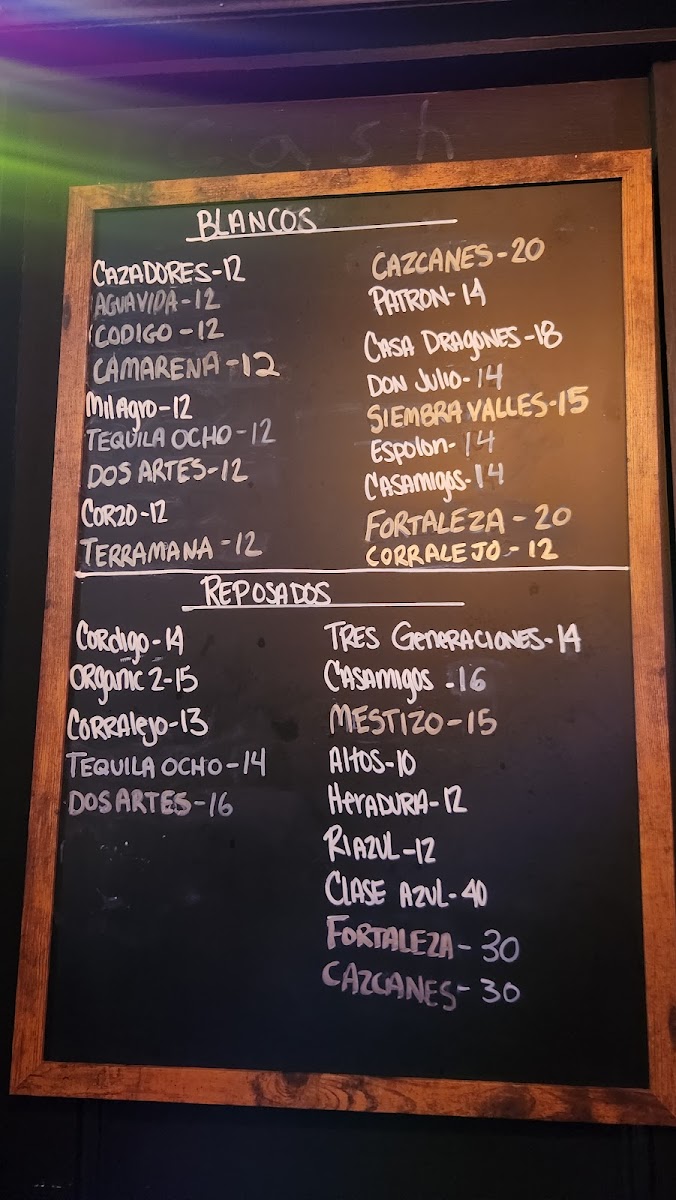 Cash
BLANCOS
CAZADORES-12
AGUAVIDA-12
CODIGO-12
CAMARENA-12
Milagro-12
TEQUILA OCHO-12
DOS ARTES-12
CORZO-12
TERRAMANA-12
CAZCANES-20
PATRON-14
CASA DRAGONES-18
DON JULIO-14
SIEMBRA VALLES-15
Espolon-14
CASAMIGOS-14
FORTALEZA-20
CORRALEJO-12
REPOSADOS
Cordigo-14
ORGANIC 2-15
CORRAlejo-13
TEQUILA OCHO-14
DOS ARTES-16
TRES GENERACIONES-14
CASAMIGOS-16
MESTIZO-15
Altos-10
HerADURA-12
RIAZUL-12
CLASE AZUL-40
FORTALEZA-30
CAZCANES-30